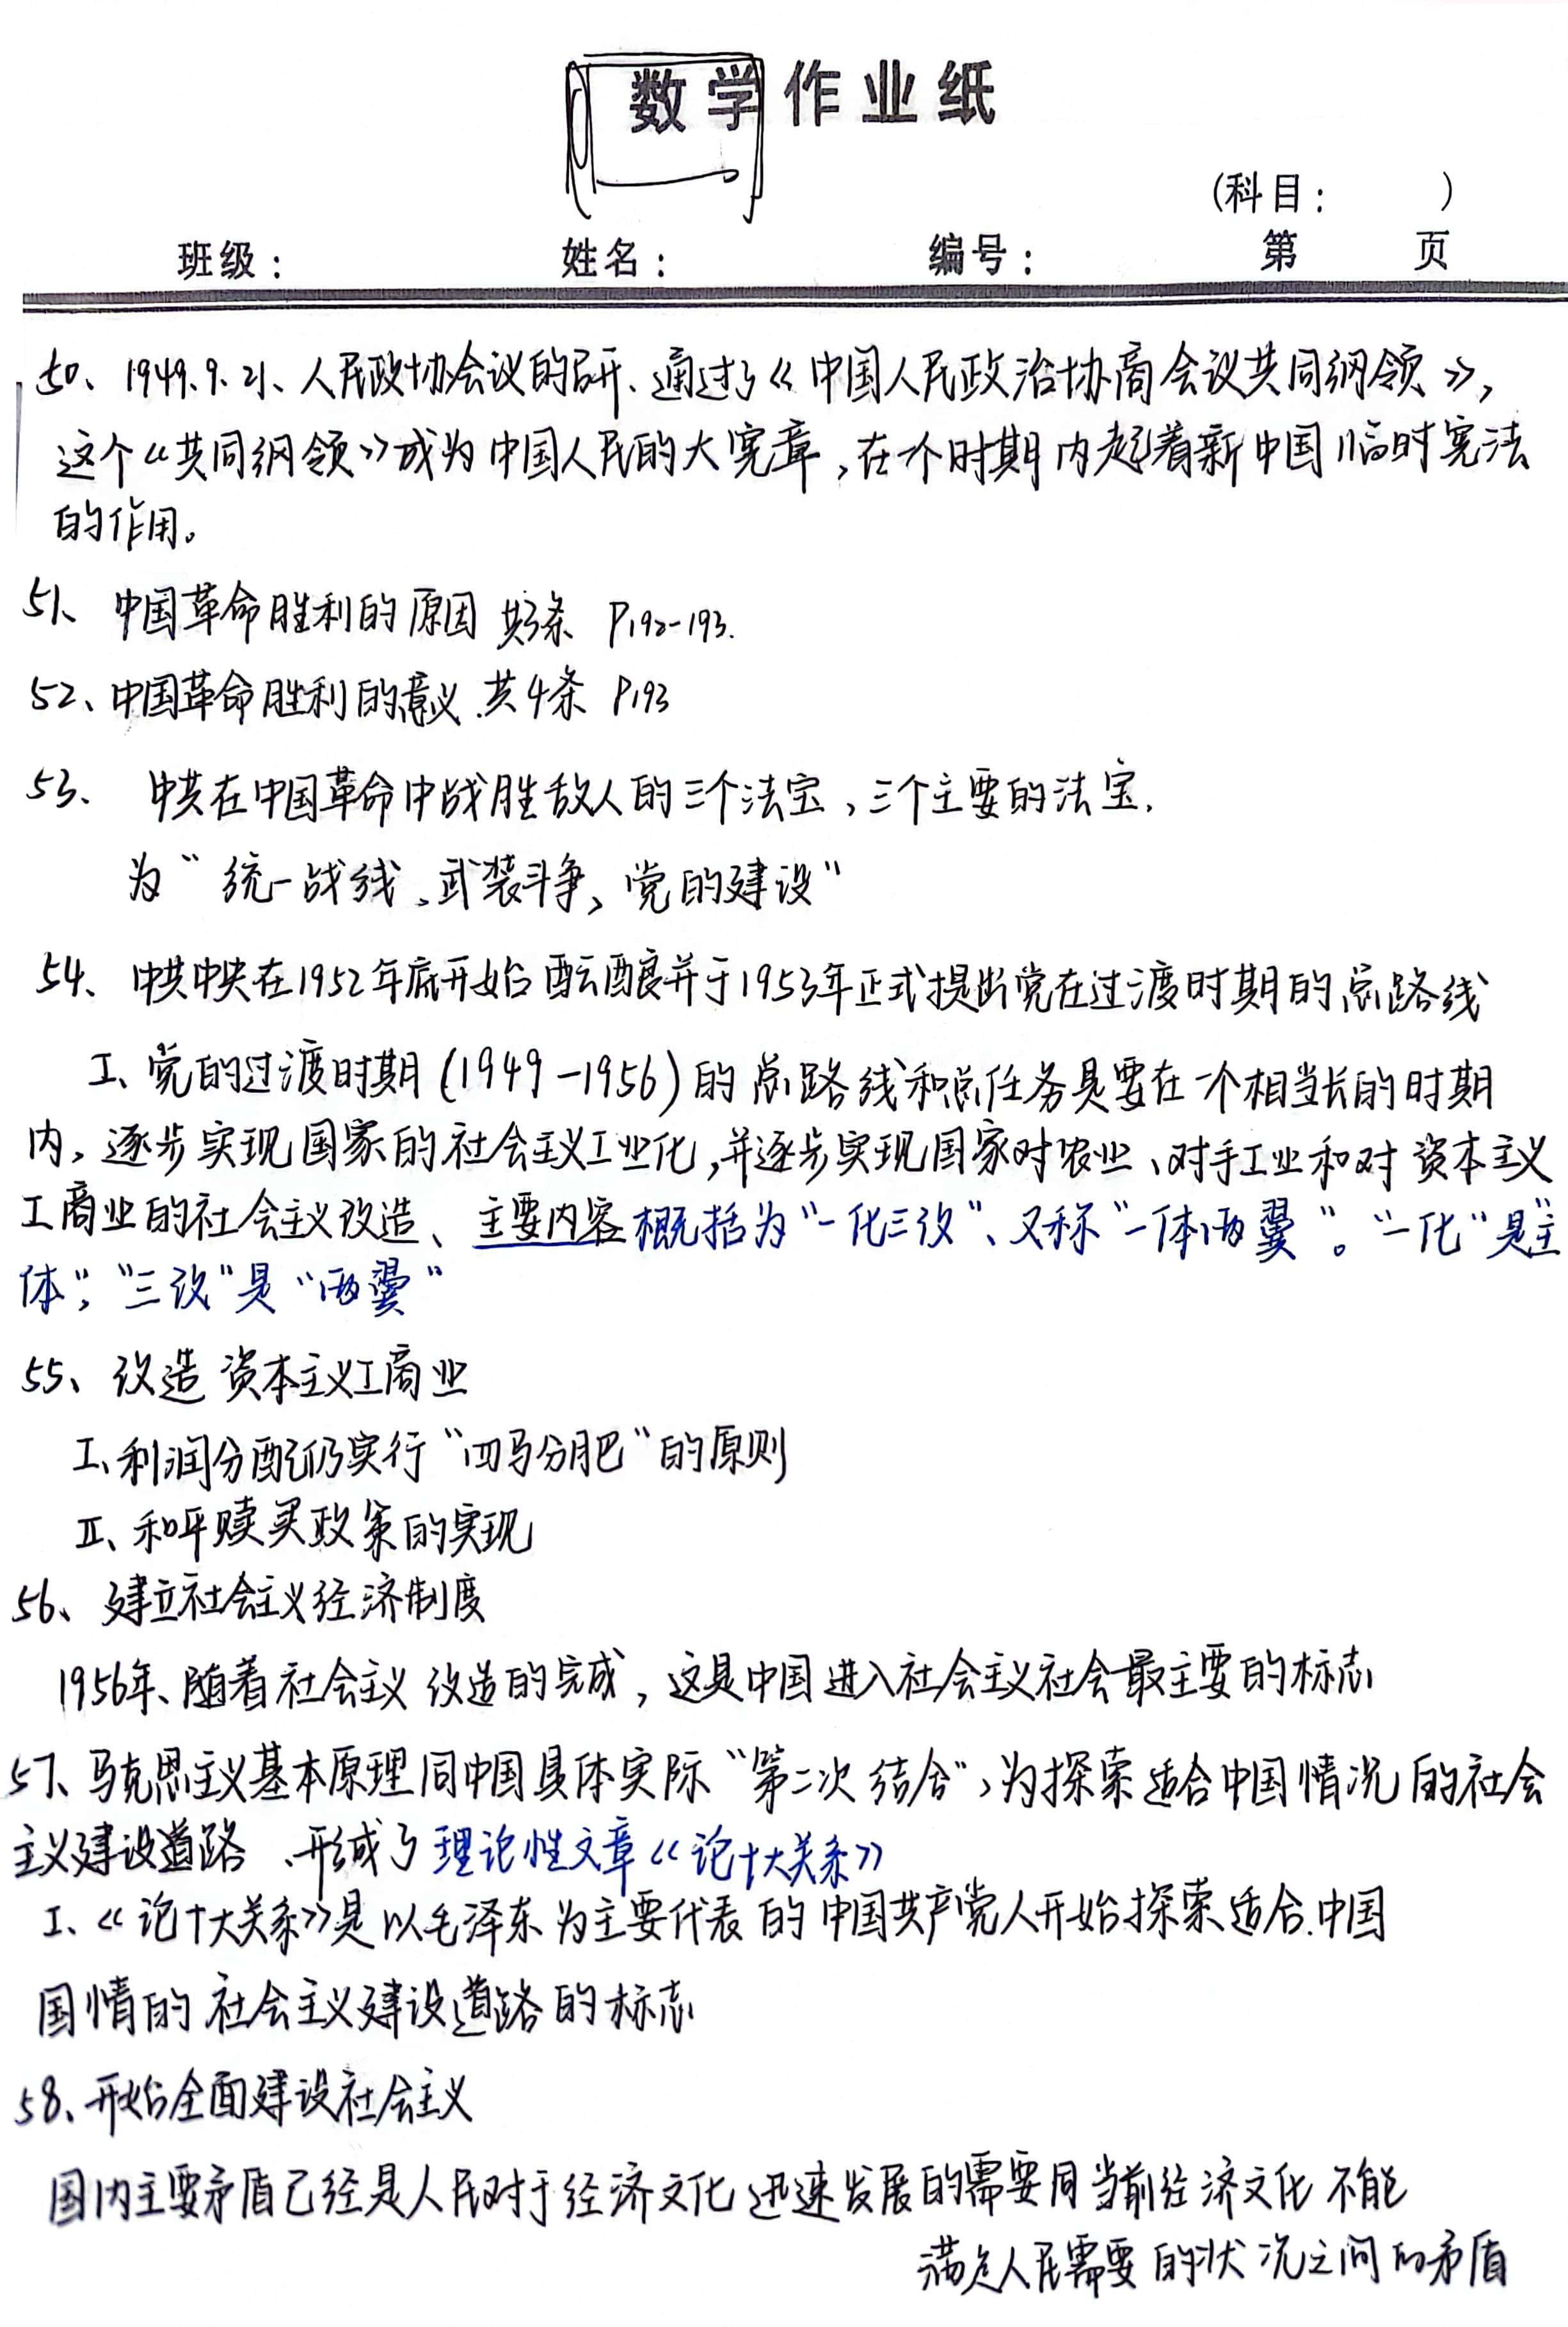 数学作业纸
(科目: )
班级: 姓名: 编号: 第 页
50、1949.9.21、人民政协会议的召开、通过了《中国人民政治协商会议共同纲领》,
这个《共同纲领》成为中国人民的大宪章,在个时期内起着新中国临时宪法
的作用。
51、中国革命胜利的原因 共3条 P192-193.
52、中国革命胜利的意义.共4条 P193
53、 中共在中国革命中战胜敌人的三个法宝,三个主要的法宝.
为“统一战线、武装斗争、党的建设”
54、中共中央在1952年底开始酝酿并于1953年正式提出党在过渡时期的总路线
I、党的过渡时期(1949-1956)的总路线和总任务是要在一个相当长的时期
内,逐步实现国家的社会主义工业化,并逐步实现国家对农业、对手工业和对资本主义
工商业的社会主义改造、主要内容概括为“一化三改”、又称“一体两翼”。“一化”是“主
体”;“三改”是“两翼”
55、改造资本主义工商业
I、利润分配仍实行“四马分肥”的原则
II、和平赎买政策的实现
56、建立社会主义经济制度
1956年、随着社会主义改造的完成,这是中国进入社会主义社会最主要的标志
57、马克思主义基本原理同中国具体实际“第二次结合”,为探索适合中国情况的社会
主义建设道路、形成了理论性文章《论十大关系》
I、《论十大关系》是以毛泽东为主要代表的中国共产党人开始探索适合.中国
国情的社会主义建设道路的标志
58、开始全面建设社会主义
国内主要矛盾已经是人民对于经济文化迅速发展的需要同当前经济文化不能
满足人民需要的状况之间的矛盾